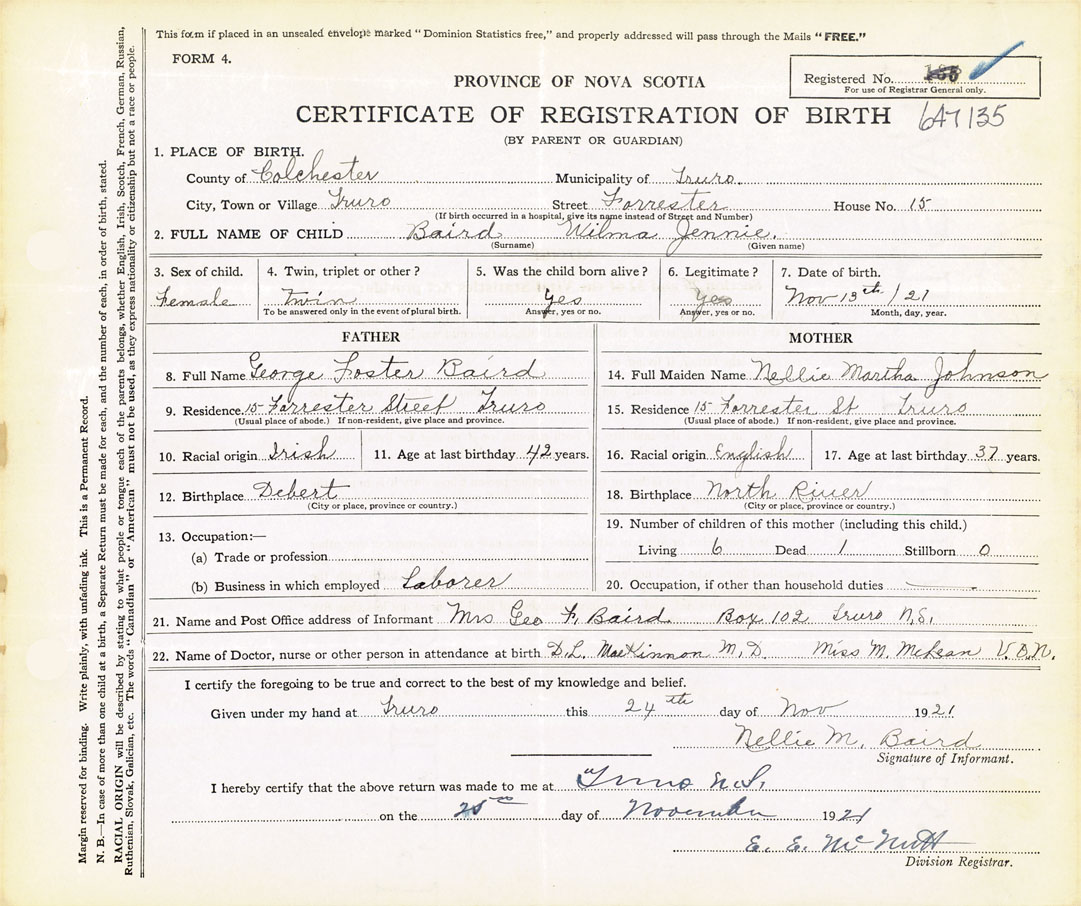 This form if placed in an unsealed envelope marked "Dominion Statistics free," and properly addressed will pass through the Mails "FREE."
FORM 4.
Registered No.
For use of Registrar General only.
PROVINCE OF NOVA SCOTIA
CERTIFICATE OF REGISTRATION OF BIRTH 647135
(BY PARENT OR GUARDIAN)
1. PLACE OF BIRTH.
County of Colchester Municipality of Truro.
City, Town or Village Truro Street Forrester House No. 15
(If birth occurred in a hospital, give its name instead of Street and Number)
2. FULL NAME OF CHILD Baird Wilma Jennie.
(Surname) (Given name)
3. Sex of child. 4. Twin, triplet or other? 5. Was the child born alive? 6. Legitimate? 7. Date of birth.
Female twin Yes Yes Nov 13th/21
To be answered only in the event of plural birth. Answer, yes or no. Answer, yes or no. Month, day, year.
FATHER MOTHER
8. Full Name George Foster Baird 14. Full Maiden Name Nellie Martha Johnson
9. Residence 15 Forrester Street Truro 15. Residence 15 Forrester St Truro
(Usual place of abode.) If non-resident, give place and province. (Usual place of abode.) If non-resident, give place and province.
10. Racial origin Irish 11. Age at last birthday 42 years. 16. Racial origin English 17. Age at last birthday 37 years.
12. Birthplace Debert 18. Birthplace North River
(City or place, province or country.) (City or place, province or country.)
13. Occupation:— 19. Number of children of this mother (including this child.)
(a) Trade or profession Living 6 Dead 1 Stillborn 0
(b) Business in which employed Laborer 20. Occupation, if other than household duties
21. Name and Post Office address of Informant Mrs Geo F. Baird Box 102 Truro N.S.
22. Name of Doctor, nurse or other person in attendance at birth D.L. MacKinnon M.D. Miss M. McLean V.O.N.
I certify the foregoing to be true and correct to the best of my knowledge and belief.
Given under my hand at Truro this 24th day of Nov 1921
Nellie M. Baird
Signature of Informant.
I hereby certify that the above return was made to me at Truro N.S.
on the 25th day of November 1921
E. E. McNutt
Division Registrar.
Margin reserved for binding. Write plainly, with unfading ink. This is a Permanent Record.
N. B.—In case of more than one child at a birth, a Separate Return must be made for each, and the number of each, in order of birth, stated.
RACIAL ORIGIN will be described by stating to what people or tongue each of the parents belongs, whether English, Irish, Scotch, French, German, Russian,
Ruthenian, Slovak, Galician, etc. The words "Canadian" or "American" must not be used, as they express nationality or citizenship but not a race or people.